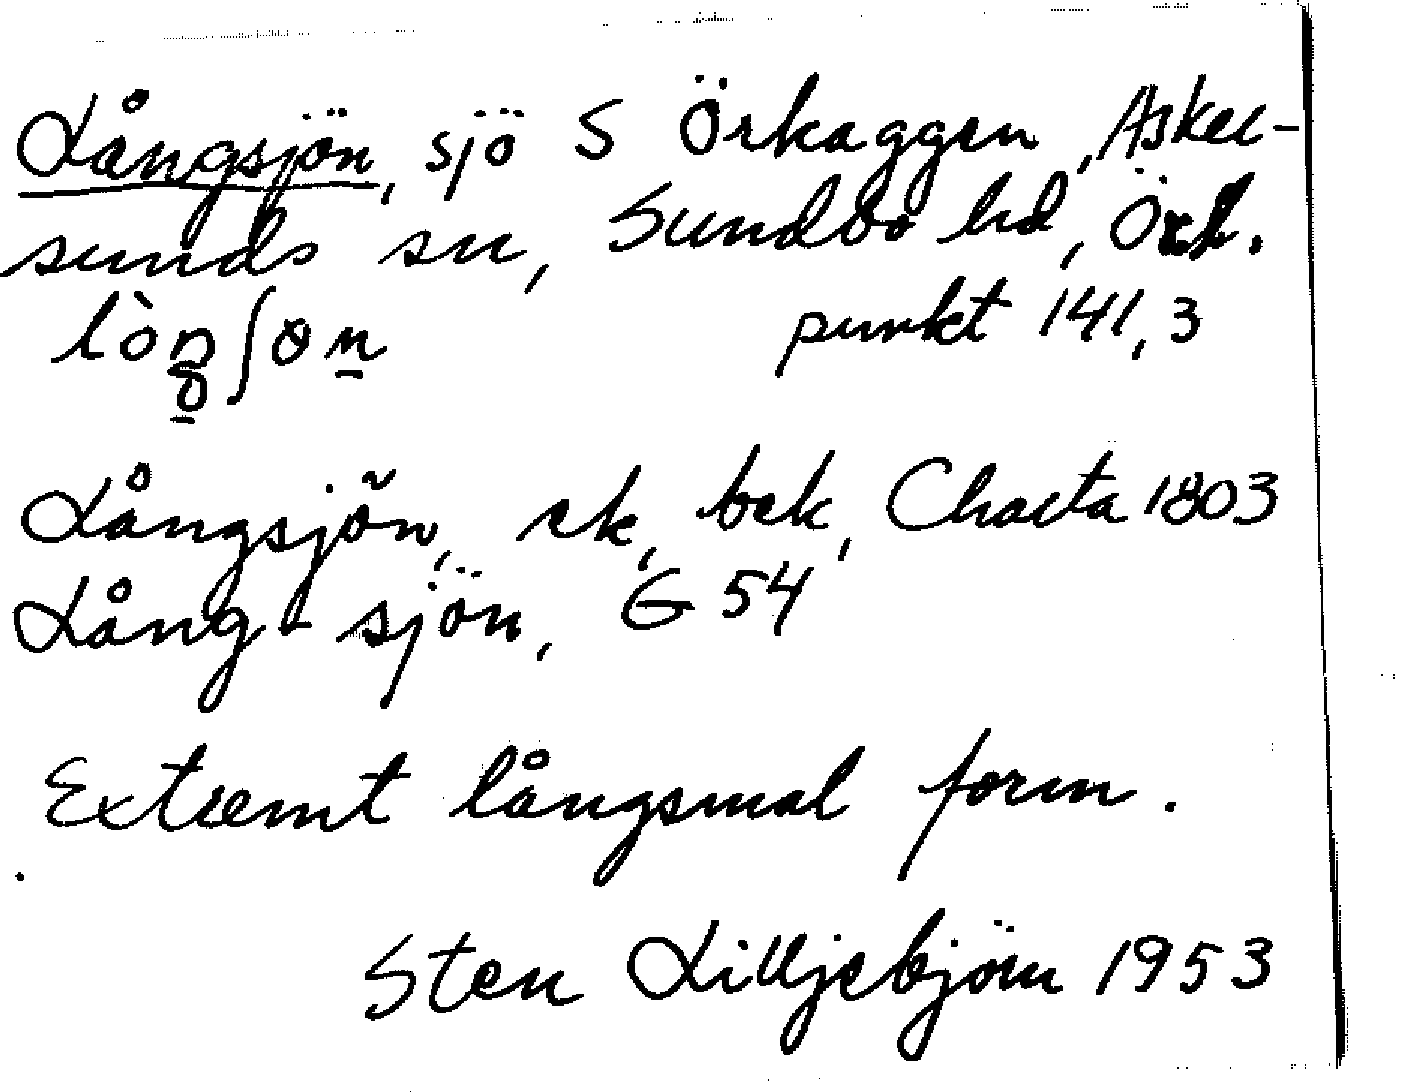 Långsjön, sjö S Örkaggen, Asker-
sunds sn, Sundbo hd, Örl.
punkt 141,3
Långsjön, ek, bek, Charta 1803
Lång-sjön, G 54
Extremt långsmal form.
Sten Lilljebjörn 1953